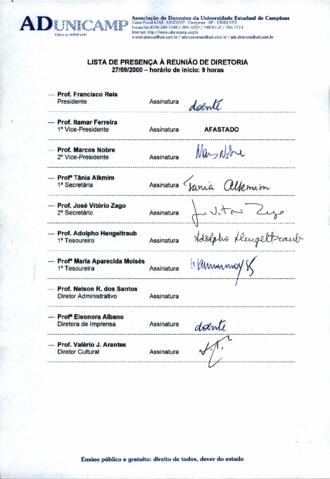 ADUNICAMP
Associação de Docentes da Universidade Estadual de Campinas
LISTA DE PRESENÇA À REUNIÃO DE DIRETORIA
27/09/2000 – horário de início: 9 horas
— Prof. Francisco Reis
Presidente Assinatura doente
— Prof. Itamar Ferreira
1º Vice-Presidente Assinatura AFASTADO
— Prof. Marcos Nobre
2º Vice-Presidente Assinatura Marcos Nobre
— Profª Tânia Alkmim
1ª Secretária Assinatura Tania Alkmim
— Prof. José Vitório Zago
2º Secretário Assinatura Zago
— Prof. Adolpho Hengeltraub
1º Tesoureiro Assinatura Adolpho Hengeltraub
— Profª Maria Aparecida Moisés
1ª Tesoureira Assinatura
— Prof. Nelson R. dos Santos
Diretor Administrativo Assinatura
— Profª Eleonora Albano
Diretora de Imprensa Assinatura doente
— Prof. Valério J. Arantes
Diretor Cultural Assinatura
Ensino público e gratuito: direito de todos, dever do estado